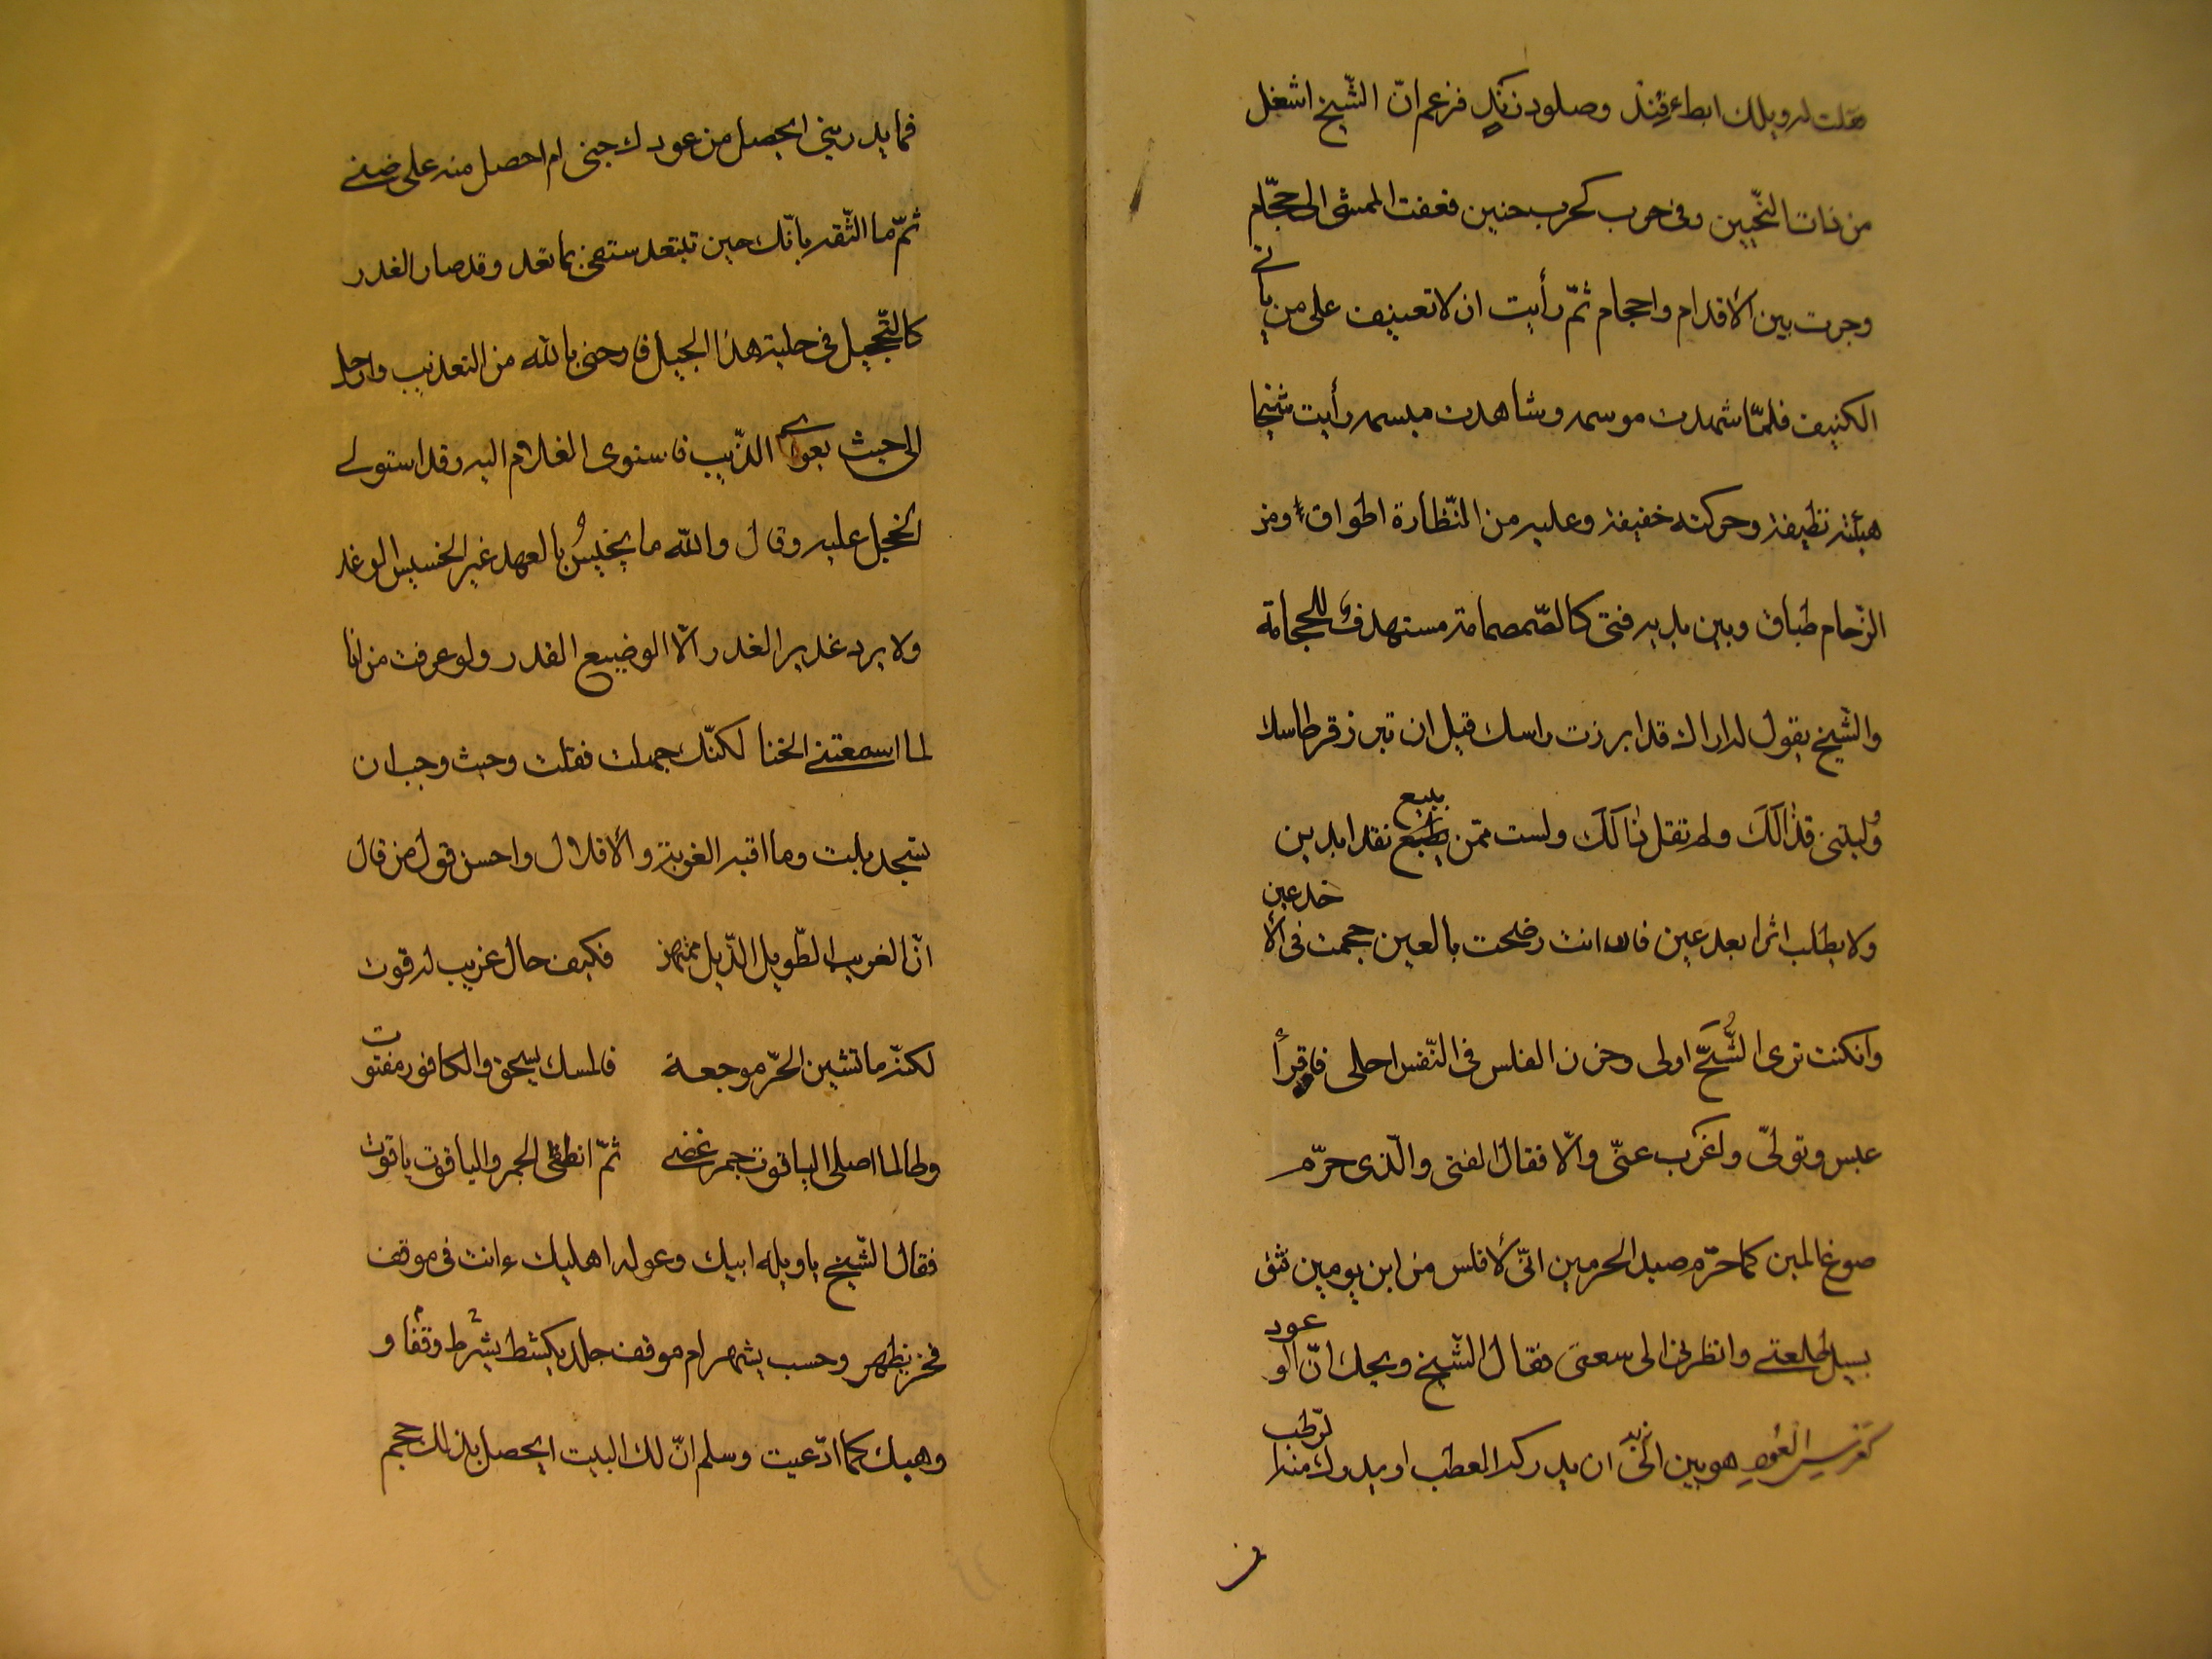 فقلت له ويلك ابطء فند وصلود زند فزعم انّ الشّيخ اشغل
من ذات النّحيين وفى حرب كحرب حنين فعفت الممشى الى حجّام
وحرت بين الاقدام واحجام ثمّ رأيت ان لا تعنيف على من يأتى
الكنيف فلمّا شهدت موسمه وشاهدت ميسمه رأيت شيخا
هيئته نظيفة وحركته خفيفة وعليه من النّظارة اطواق ومن
الزّحام طباق وبين يديه فتى كالصّمصامة مستهدف للحجامة
والشّيخ يقول له اراك قد ابرزت راسك قبل ان تبرز قرطاسك
وولّيتنى قذالك ولم تقل ذا لك ولست ممّن يبيع نقدا بدين
ولا يطلب اثرا بعد عين فان انت رضخت بالعين حجمت فى الأخدعين
وانكنت ترى الشّحّ اولى وخزن الفلس فى النّفس احلى فاقرأ
عبس وتولّى واغرب عنّى والّا فقال الفتى والّذى حرّم
صوغ المين كما حرّم صيد الحرمين انّى لافلس من ابن يومين فثق
بسيل طلعتى وانظرنى الى سعتى فقال الشّيخ ويحك انّ الوعود
كغرس العود هو بين ان يدركه العطب او يدرك منه الرّطب
فما يدرينى ايحصل من عودك جنى ام احصل منه على ضنى
ثمّ ما الثّقه بانّك حين تبتعد ستفى بما تعد وقد صار الغدر
كالتّحجيل فى حلية هذا الجيل فارحنى بالله من التعذيب وارحل
الى حيث يعوى الذّيب فاستوى الغلام اليه وقد استولى
الخجل عليه وقال والله ما يخيس بالعهد غير الخسيس الوغد
ولا يرد غدير الغدر الّا الوضيع القدر ولو عرفت من انا
لما اسمعتنى الخنا لكنّك جهلت فقلت وحيث وجب ان
تسجد بلت وما اقبح الغربة والاقلال واحسن قول من قال
انّ الغريب الطّويل الذّيل ممتهن فكيف حال غريب له قوت
لكنّه ما تشين الحرّ موجعة فالمسك يسحق والكافور مفتوت
وطالما اصلى الياقوت جمر غضى ثمّ انطفى الجمر والياقوت ياقوت
فقال الشّيخ يا ويلة ابيك وعولة اهليك ءانت فى موقف
فخر يظهر وحسب يشهر ام موقف جلد يكشط يشرط وقفا و
وهبك كما ادّعيت وسلم انّ لك البيت ايحصل بذلك حجم